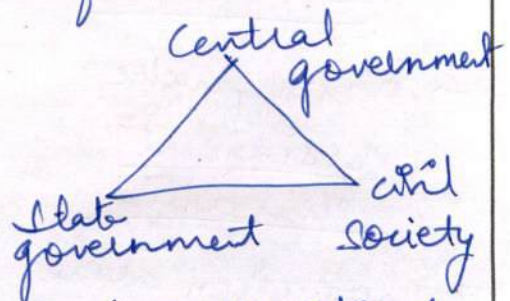 Central
government
State
government
civil
society